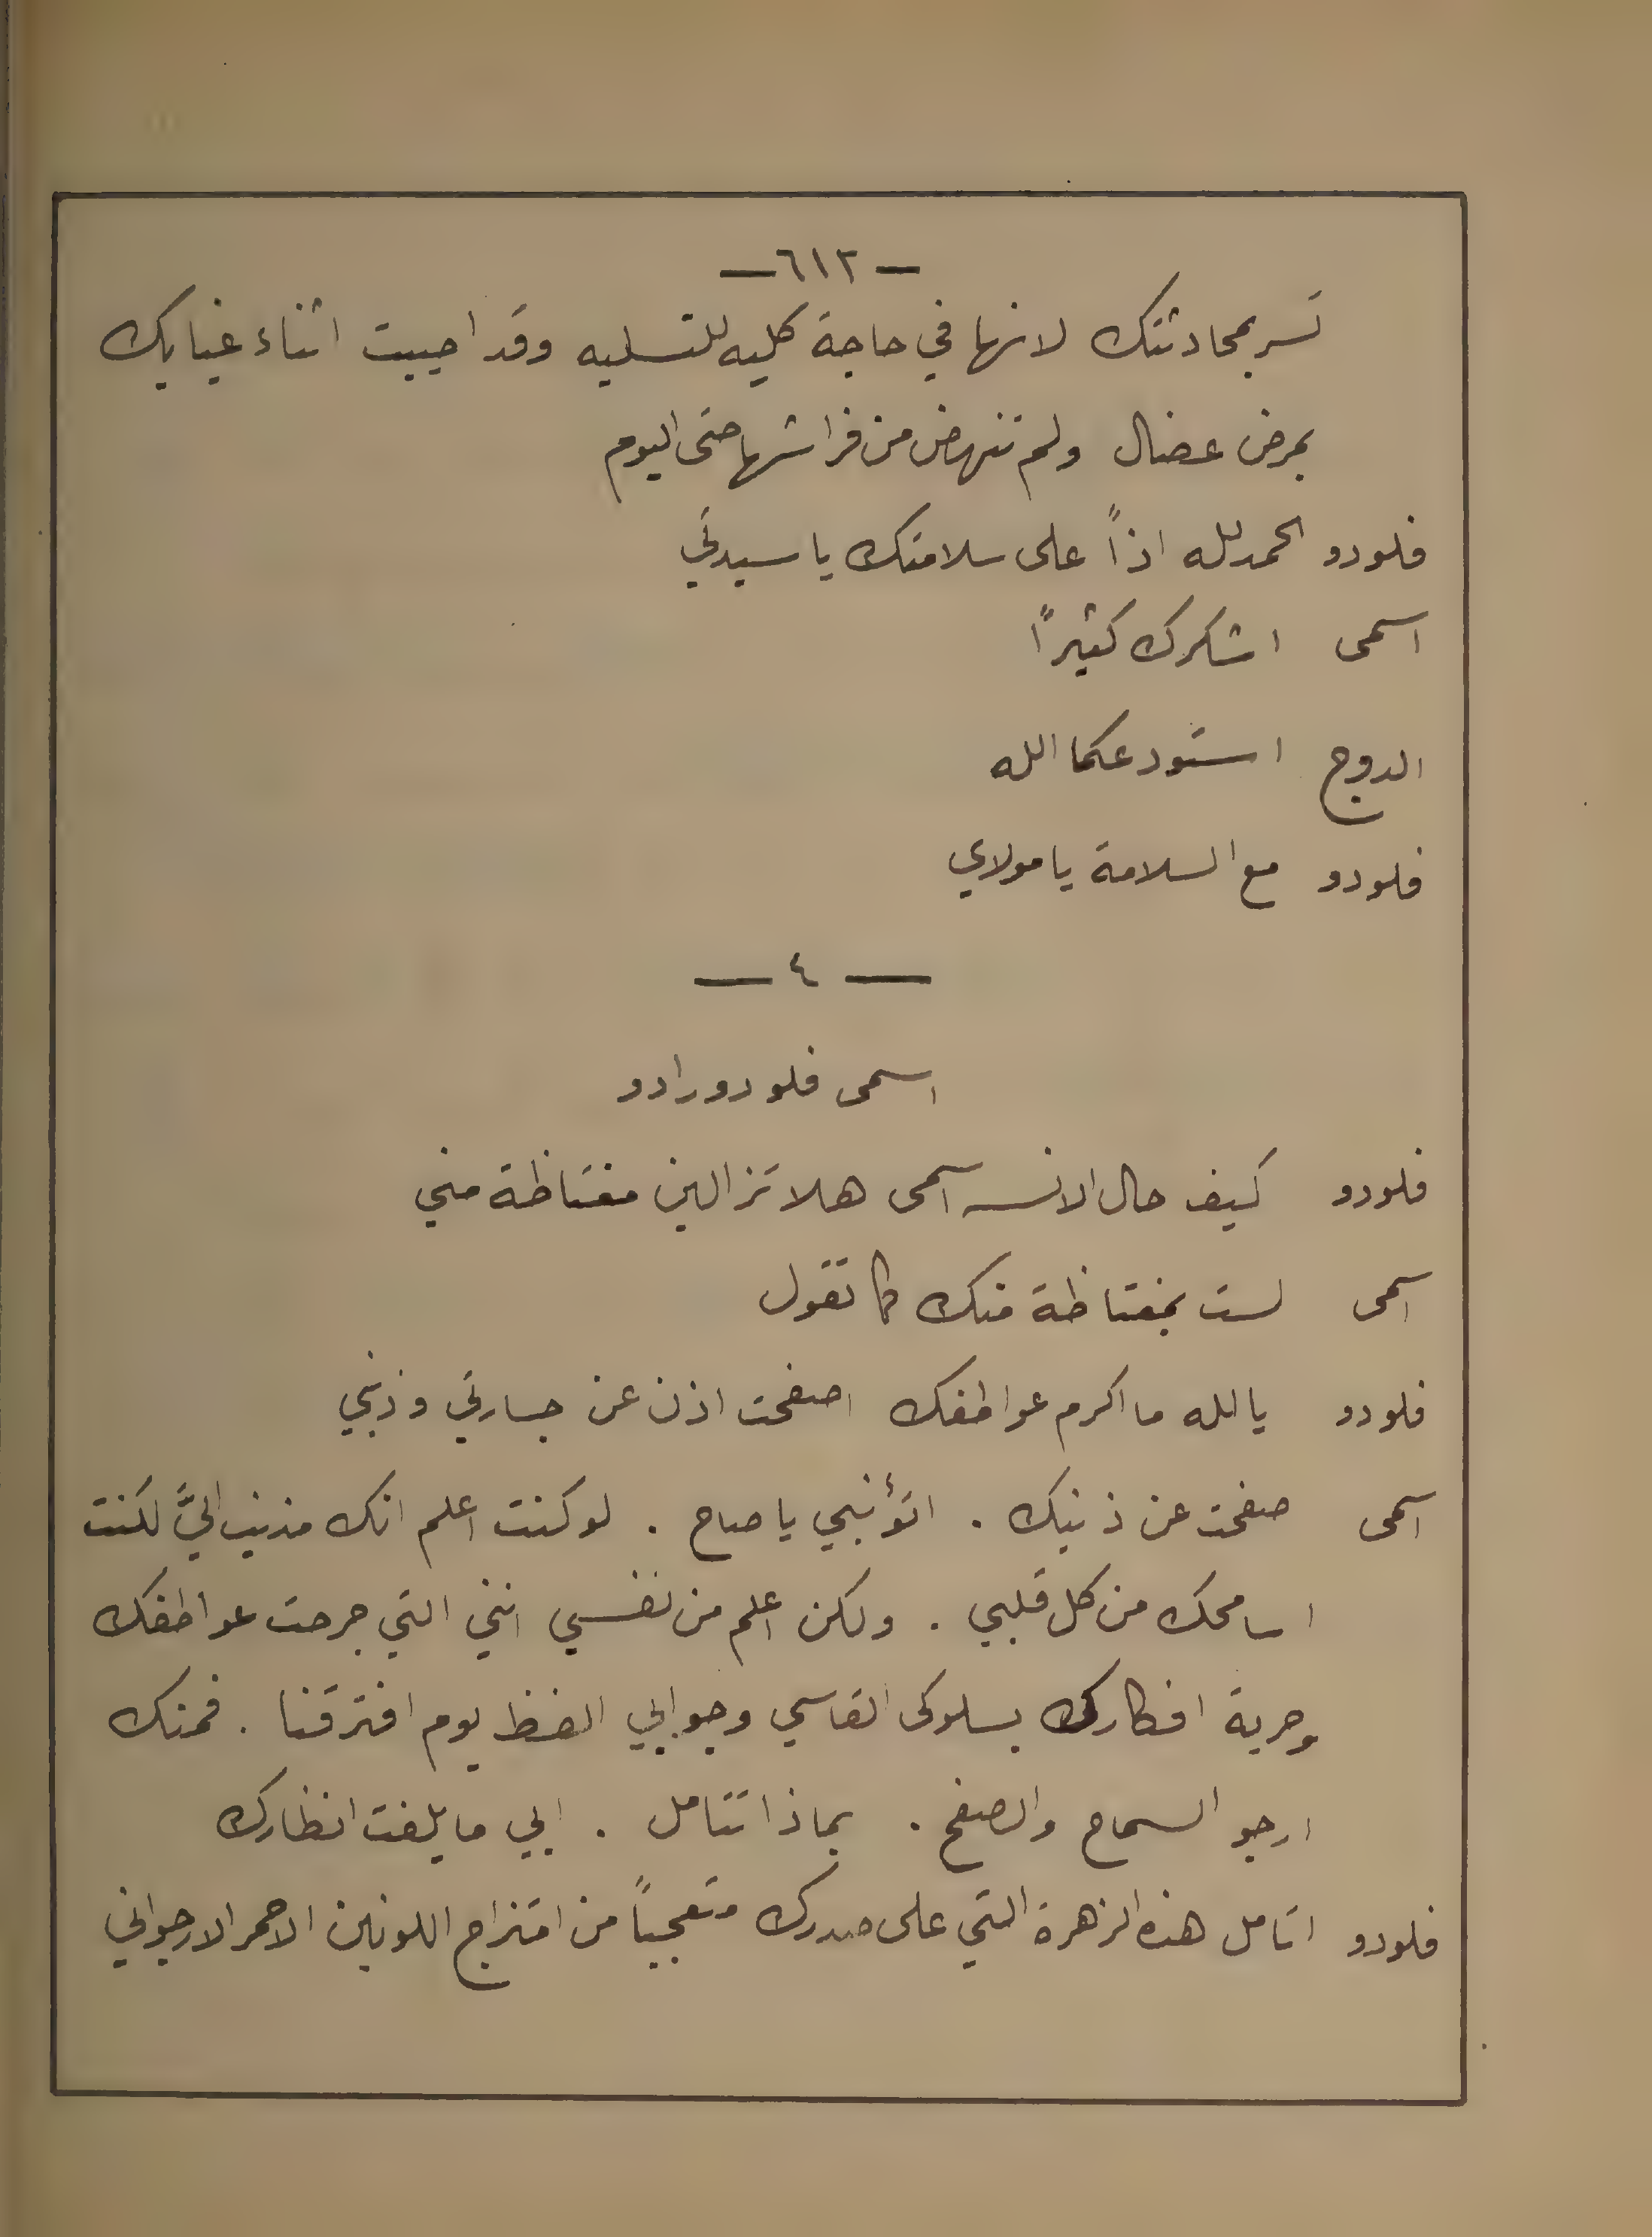 — ٦١٢ —
تسر بمحادثتك لانها في حاجة كليه للتسليه وقد اصيبت اثناء غيابك
بمرض عضال ولم تنهض من فراشها حتى اليوم
فلودو الحمدلله اذاً على سلامتك يا سيدتي
اسمى اشكرك كثيرًا
الدوج استودعكما الله
فلودو مع السلامة يا مولاي
— ٤ —
اسمى فلودورادو
فلودو كيف حال الانسه اسمى هلا تزالين مغتاظة مني
اسمى لست بمغتاظة منك كما تقول
فلودو يا الله ما اكرم عواطفك اصفحت اذن عن جسارتي وذنبي
اسمى صفحت عن ذنبك . اتؤنبني يا صاح . لو كنت اعلم انك مذنب اليَّ لكنت
اسامحك من كل قلبي . ولكن اعلم من نفسي انني التي جرحت عواطفك
وحرية افكارك بسلوكى القاسي وجوابي الفظ يوم افترقنا . فمنك
ارجو السماح والصفح . بماذا تتامل . ابي ما يلفت انظارك
فلودو اتامل هذه الزهرة التي على صدرك متعجباً من امتزاج اللونين الاحمر الارجواني